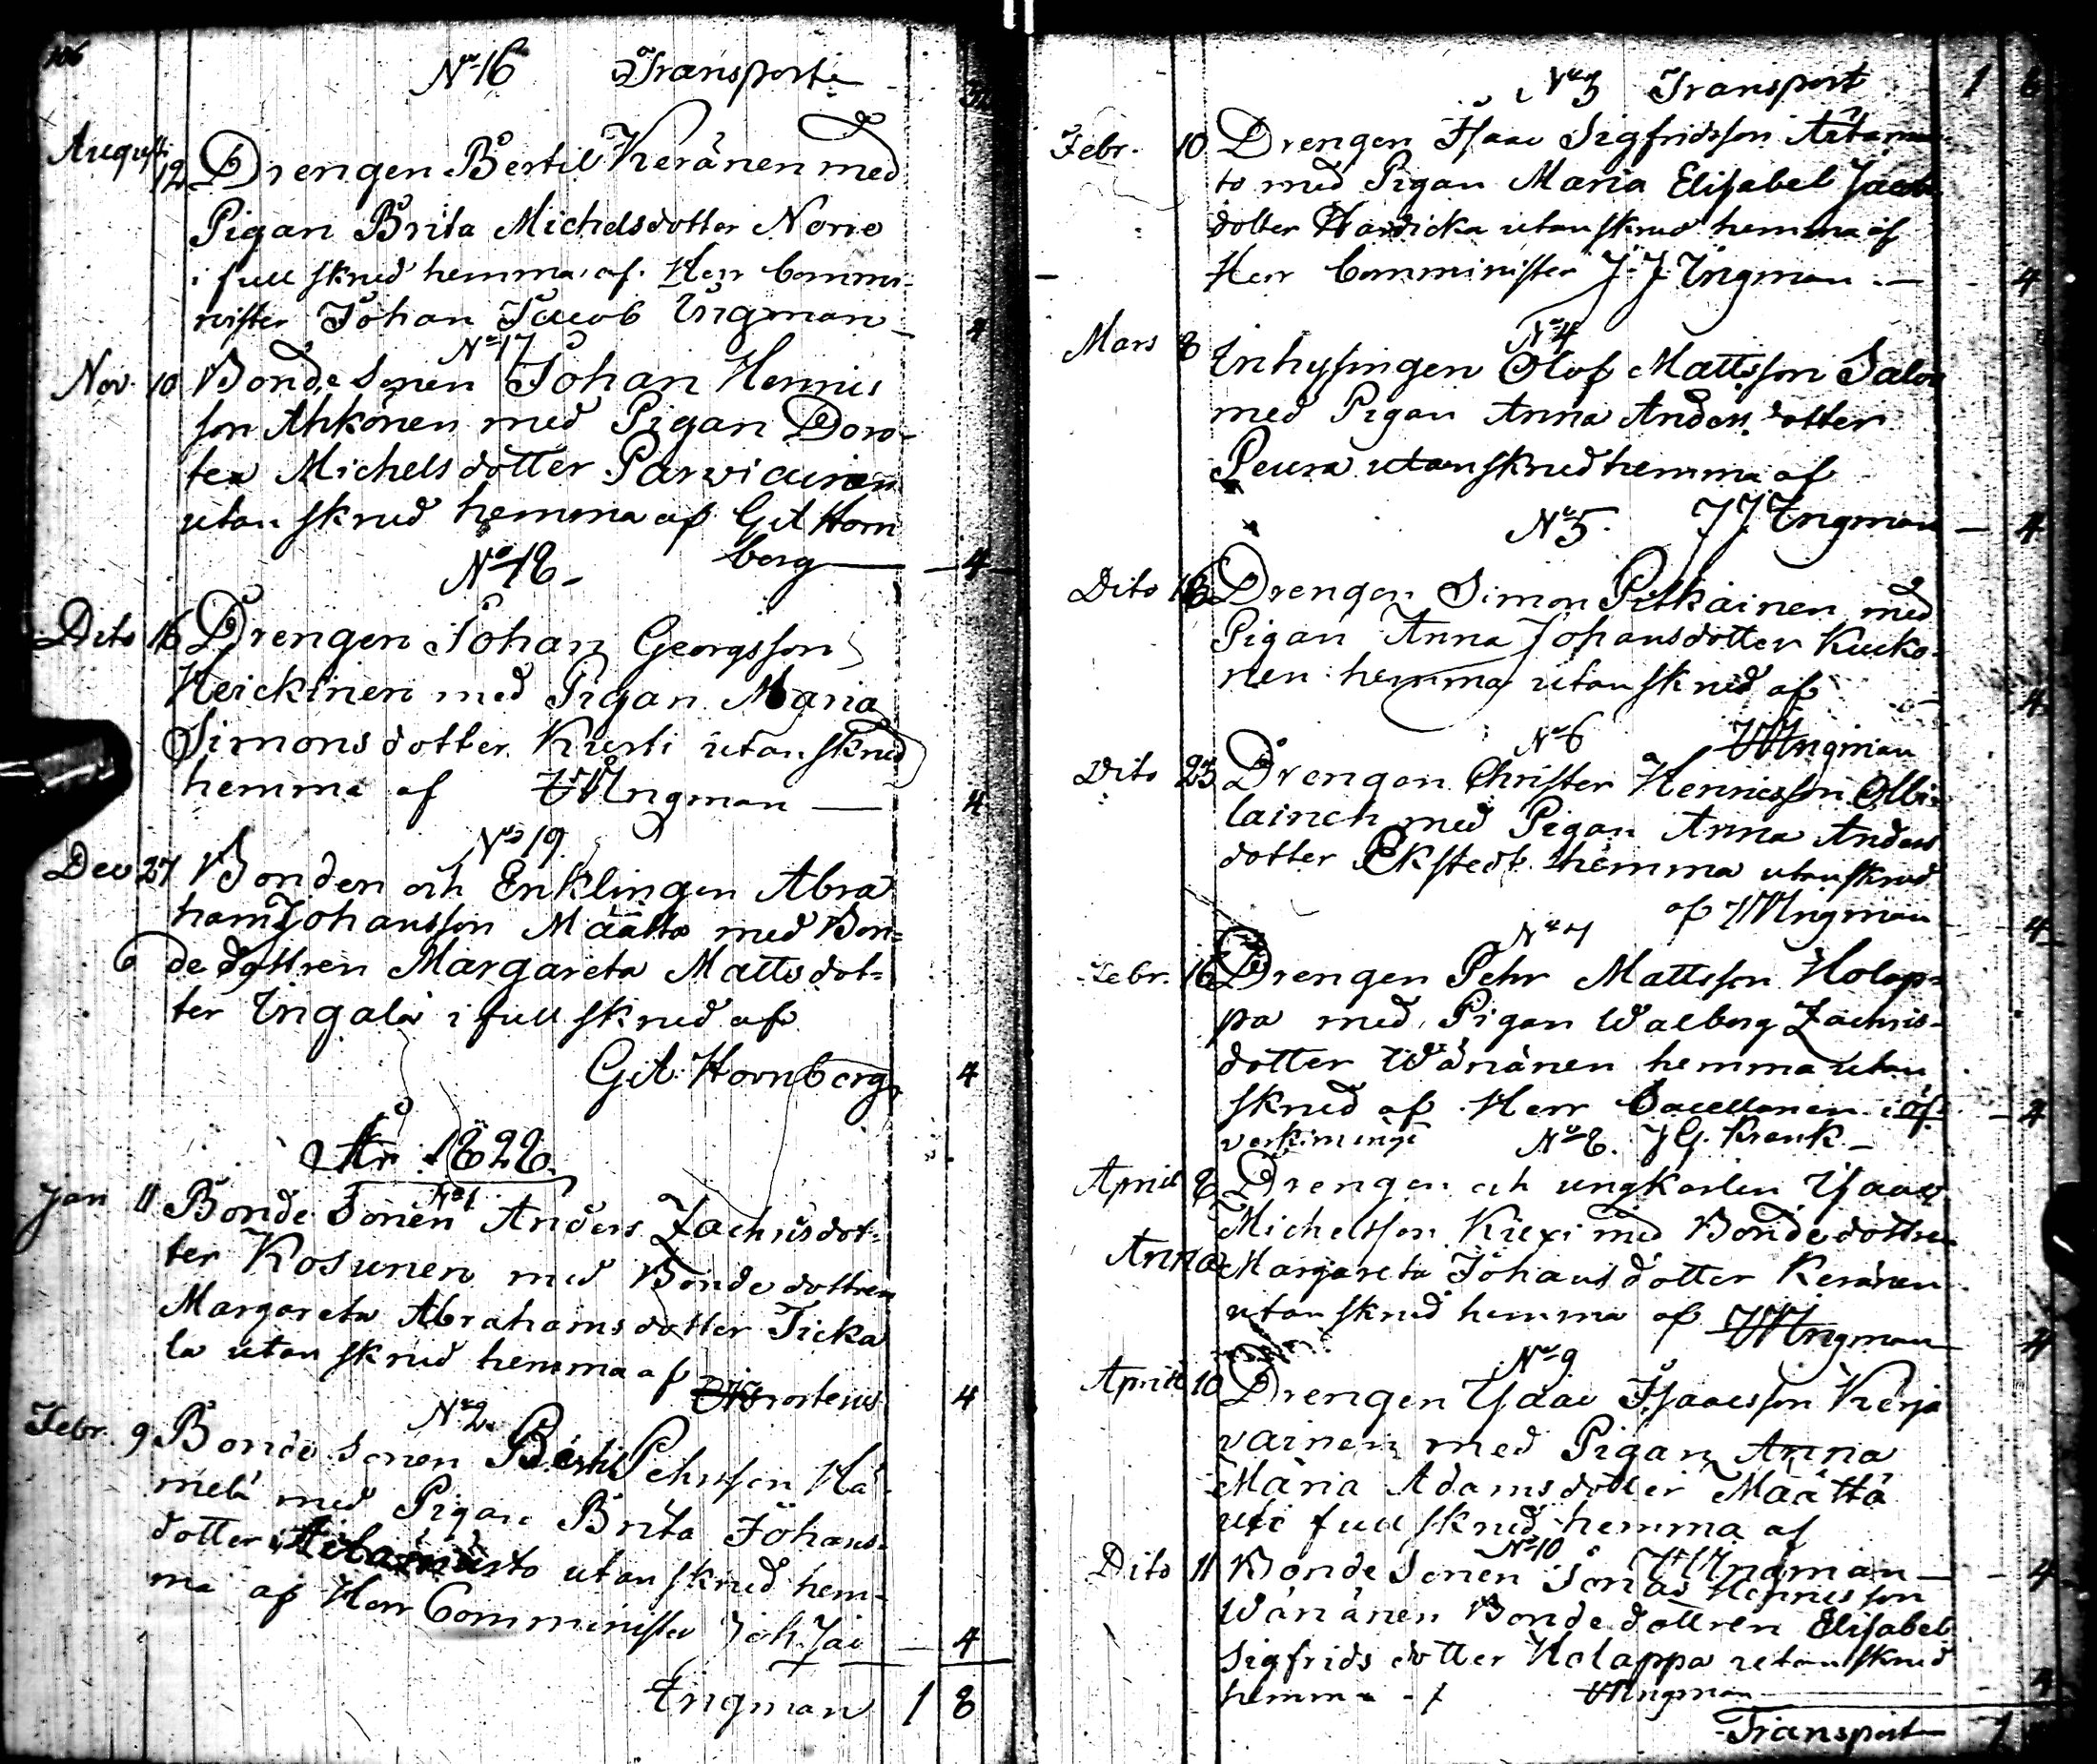 106
No 16 Transport
Augusti 12 Drengen Bertil Keränen med
Pigan Brita Michelsdotter Norio
i full skrud hemma af Herr Commi-
nister Johan Jacob Ingman — 4
No 17
Nov. 10 Bonde Sonen Johan Henrics
son Ahkonen med Pigan Doro-
tea Michelsdotter Parviainen
utan skrud hemma af Gil Horn
berg — 4
No 18
Dito 16 Drengen Johan Georgsson
Heickinen med Pigan Maria
Simonsdotter Kusti utan skrud
hemma af JJIngman — 4
No 19
Dec 27 Bonden och Enklingen Abra
ham Johansson Määtta med Bon-
de dottren Margareta Mattsdot-
ter Ingala i full skrud af
Gil Hornberg 4
År 1828
No 1
Jan 11 Bonde Sonen Anders Zachrisdot-
ter Kosunen med Bonde dottren
Margareta Abrahamsdotter Ticka
la utan skrud hemma af
4
No 2
Febr. 9 Bonde Sonen Bertil Pehrsson Hä-
melä med Pigan Brita Johans-
dotter utan skrud hem-
ma af Herr Comminister Joh Jac — 4
Ingman 1 8
No 3 Transport 1 8
Febr. 10 Drengen Isaac Sigfridsson
to med Pigan Maria Elisabet Jacobs
dotter Hardicka utan skrud hemma af
Herr Comminister J.J Ingman — 4
No 4
Mars 8 Inhysingen Olof Mattsson Salon
med Pigan Anna Anders dotter
Peura utan skrud hemma af
JJ Ingman — 4
No 5
Dito 18 Drengen Simon Pitkäinen med
Pigan Anna Johansdotter Kucko-
nen hemma utan skrud af 4
JJIngman
No 6
Dito 25 Drengen Christer Henricsson Olli-
lainen med Pigan Anna Anders
dotter Ekstedt hemma utan skrud
af JJIngman 4
No 7
Febr. 16 Drengen Pehr Mattsson Holap-
pa med Pigan Walborg Zachris-
dotter Wänänen hemma utan
skrud af Herr Cacellanen i Sä- 4
verkiminge JG. Krank —
No 8
April 8 Drengen och ungkarlen Isaac
Michelsson Kiexi med Bonde dottren
Anna Margareta Johansdotter Keränen
utan skrud hemma af JJIngman 4
No 9
April 10 Drengen Isaac Isaacsson Kerja
vainen med Pigan Anna
Maria Adamsdotter Määttä
uti full skrud hemma af
JJIngman — 4
No 10
Dito 11 Bonde Sonen Jonas Henricsson
Wänänen Bonde dottren Elisabet
Sigfrids dotter Holappa utan skrud
hemma af JJIngman — 4
Transport 1